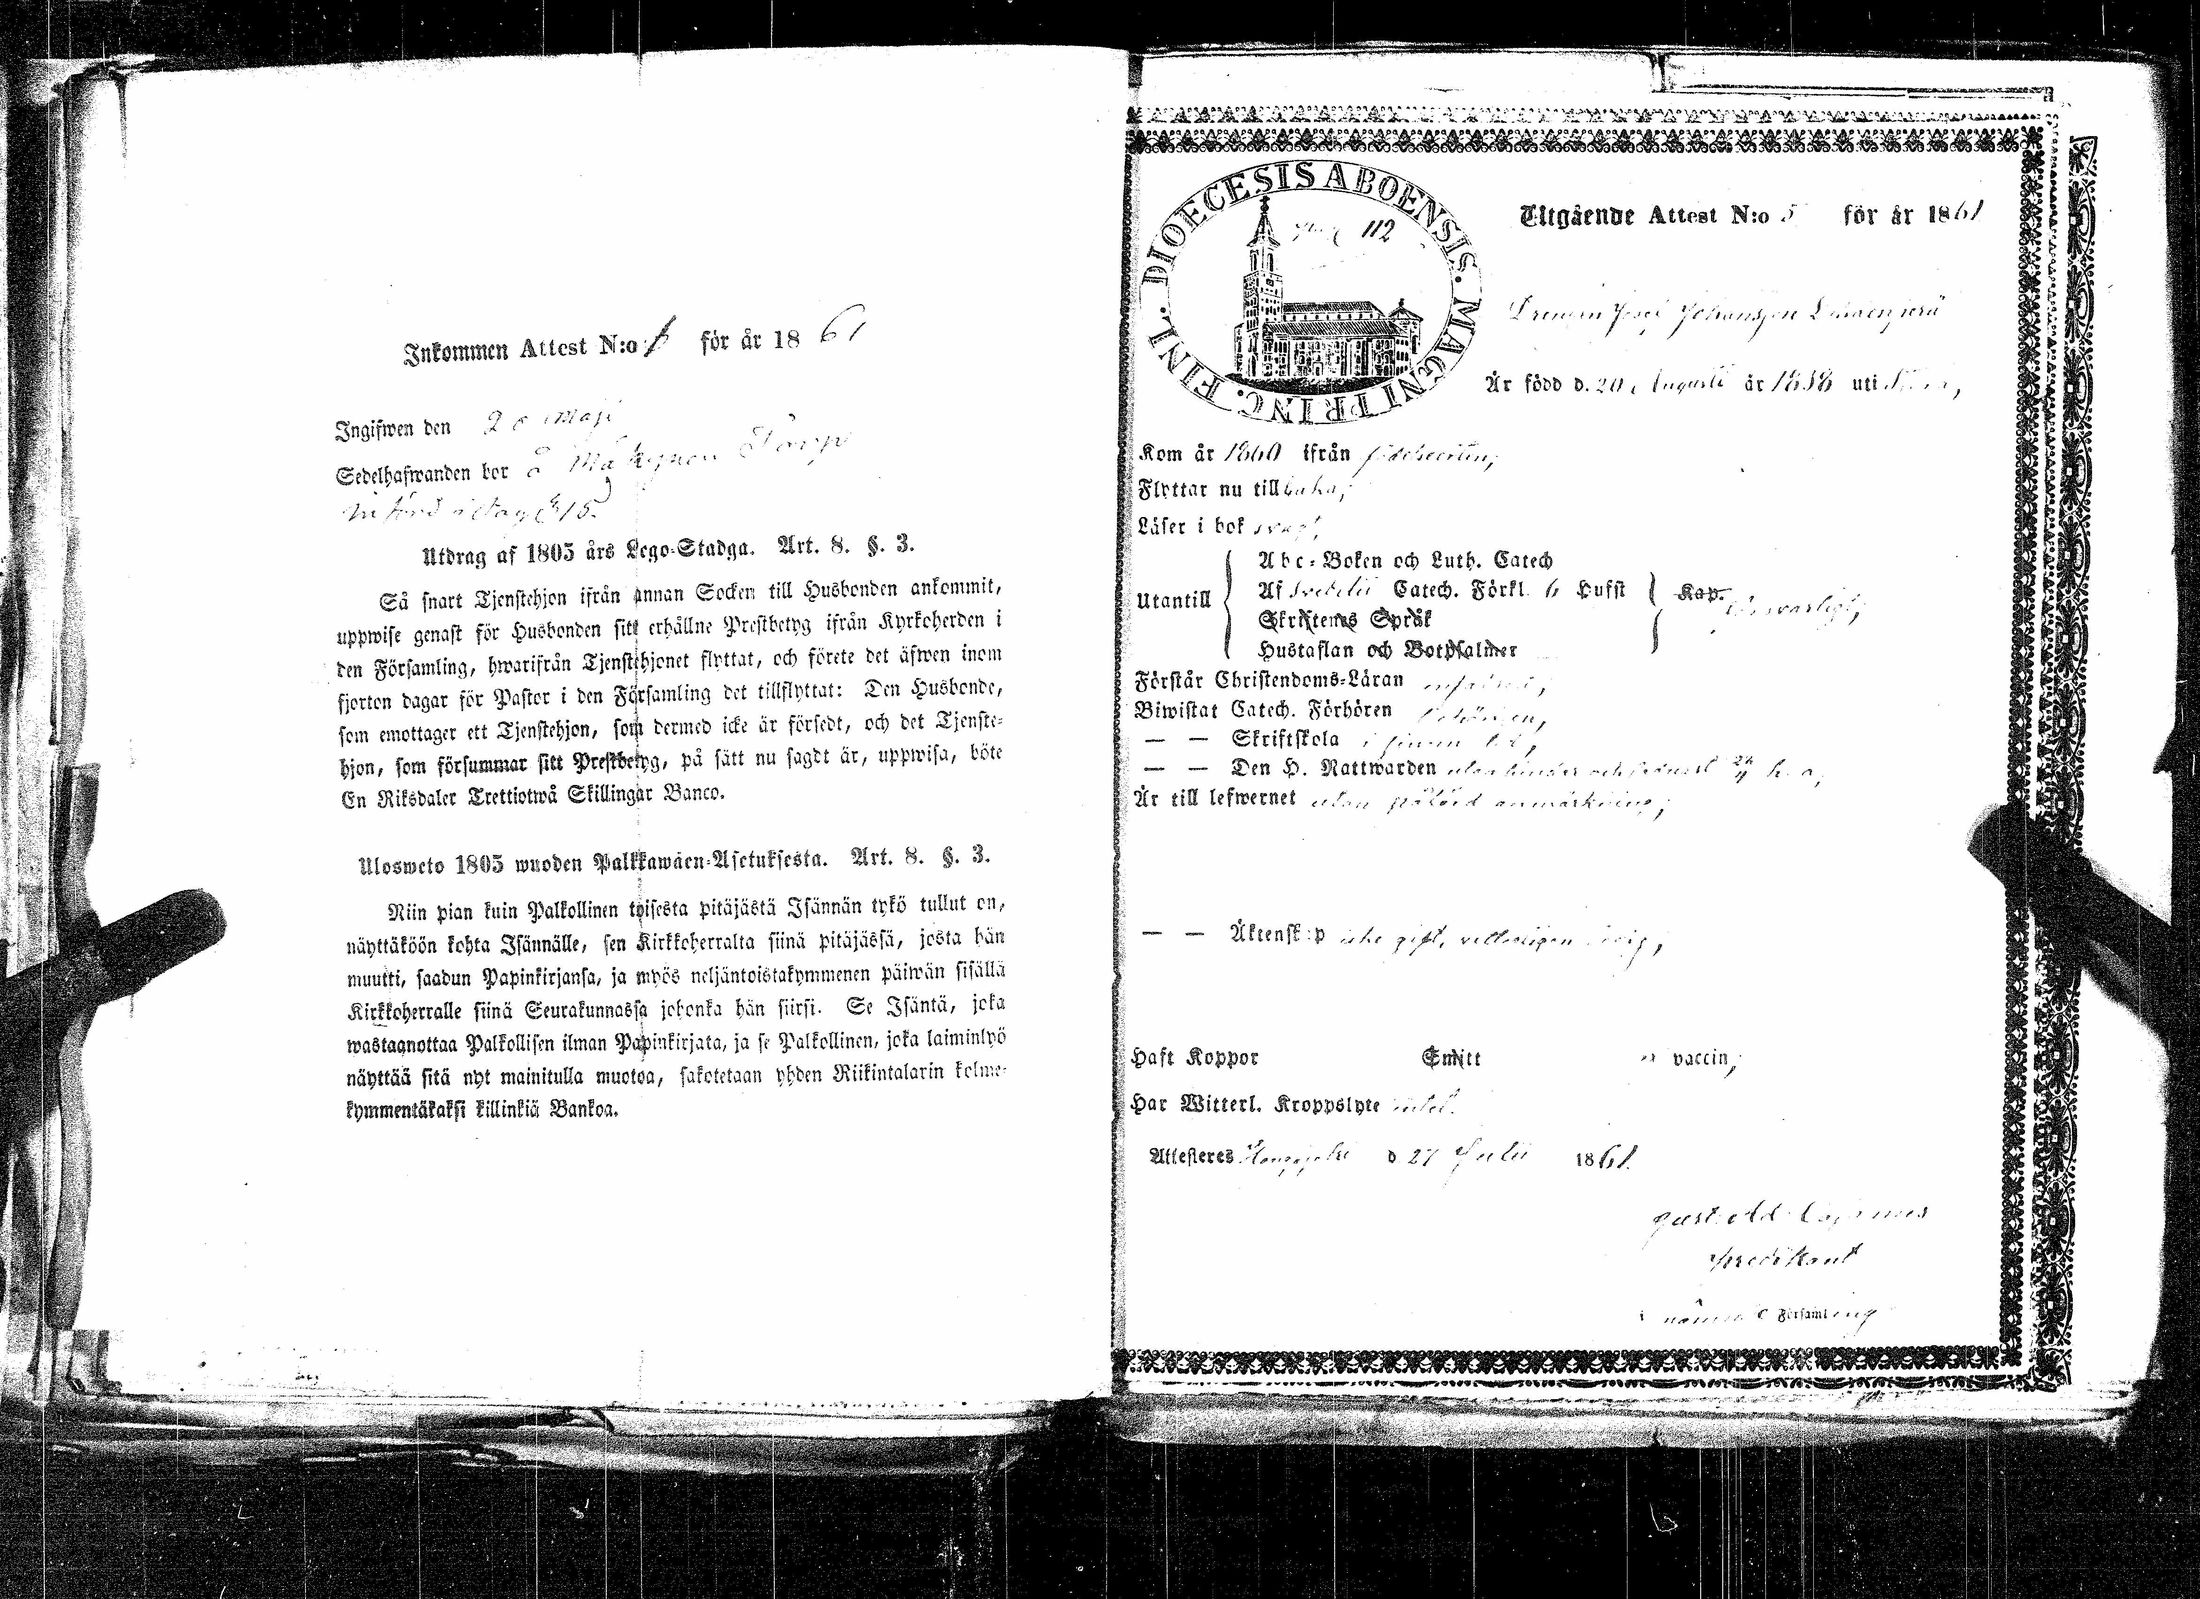 Inkommen Attest N:o för år 1861
Ingifwen den 20 Maji
Sedelhafwanden bor å Mäkynen Torp
införd i dag
Utdrag af 1805 års Lego-Stadga. Art. 8. §. 3.
Så snart Tjenstehjon ifrån annan Socken till Husbonden ankommit,
uppwise genast för Husbonden sitt erhållne Prestbetyg ifrån Kyrkoherden i
den Församling, hwarifrån Tjenstehjonet flyttat, och förete det äfwen inom
fjorton dagar för Pastor i den Församling det tillflyttat: Den Husbonde,
som emottager ett Tjenstehjon, som dermed icke är försedt, och det Tjenste-
hjon, som försummar sitt Prestbetyg, på sätt nu sagdt är, uppwisa, böte
En Riksdaler Trettiotwå Skillingar Banco.
Ulosweto 1805 wuoden Palkkawäen-Asetuksesta. Art. 8. §. 3.
Niin pian kuin Palkollinen toisesta pitäjästä Isännän tykö tullut on,
näyttäköön kohta Isännälle, sen Kirkkoherralta siinä pitäjässä, josta hän
muutti, saadun Papinkirjansa, ja myös neljäntoistakymmenen päiwän sisällä
Kirkkoherralle siinä Seurakunnassa johonka hän siirsi. Se Isäntä, joka
wastaanottaa Palkollisen ilman Papinkirjata, ja se Palkollinen, joka laiminlyö
näyttää sitä nyt mainitulla muotoa, sakotetaan yhden Riikintalarin kolme-
kymmentäkaksi killinkiä Bankoa.
DIOECESIS ABOENSIS. MAGNI PRINC. FINL.
112
Utgående Attest N:o 5 för år 1861
Drengen Josef Johansson
Är född d. 20 Augusti år 1838 uti
Kom år 1860 ifrån födelseorten,
Flyttar nu tillbaka,
Läser i bok svagt,
Utantill
Abc-Boken och Luth. Catech
Af Svebelii Catech. Förkl. 6 Hufst
Skriftenes Språk
Hustaflan och Botpsalmer
Kap. försvarligt,
Förstår Christendoms-Läran
Biwistat Catech. Förhören
— — Skriftskola
— — Den H. Nattwarden utan hinder och senast
Är till lefwernet utan påtald anmärkning,
— — Äktenskap icke gift, veterligen ledig,
Haft Koppor Smitt vaccin,
Har Witterl. Kroppslyte intet.
Attesteres d 27 Julii 1861.
Predikant
i nämnde Församling